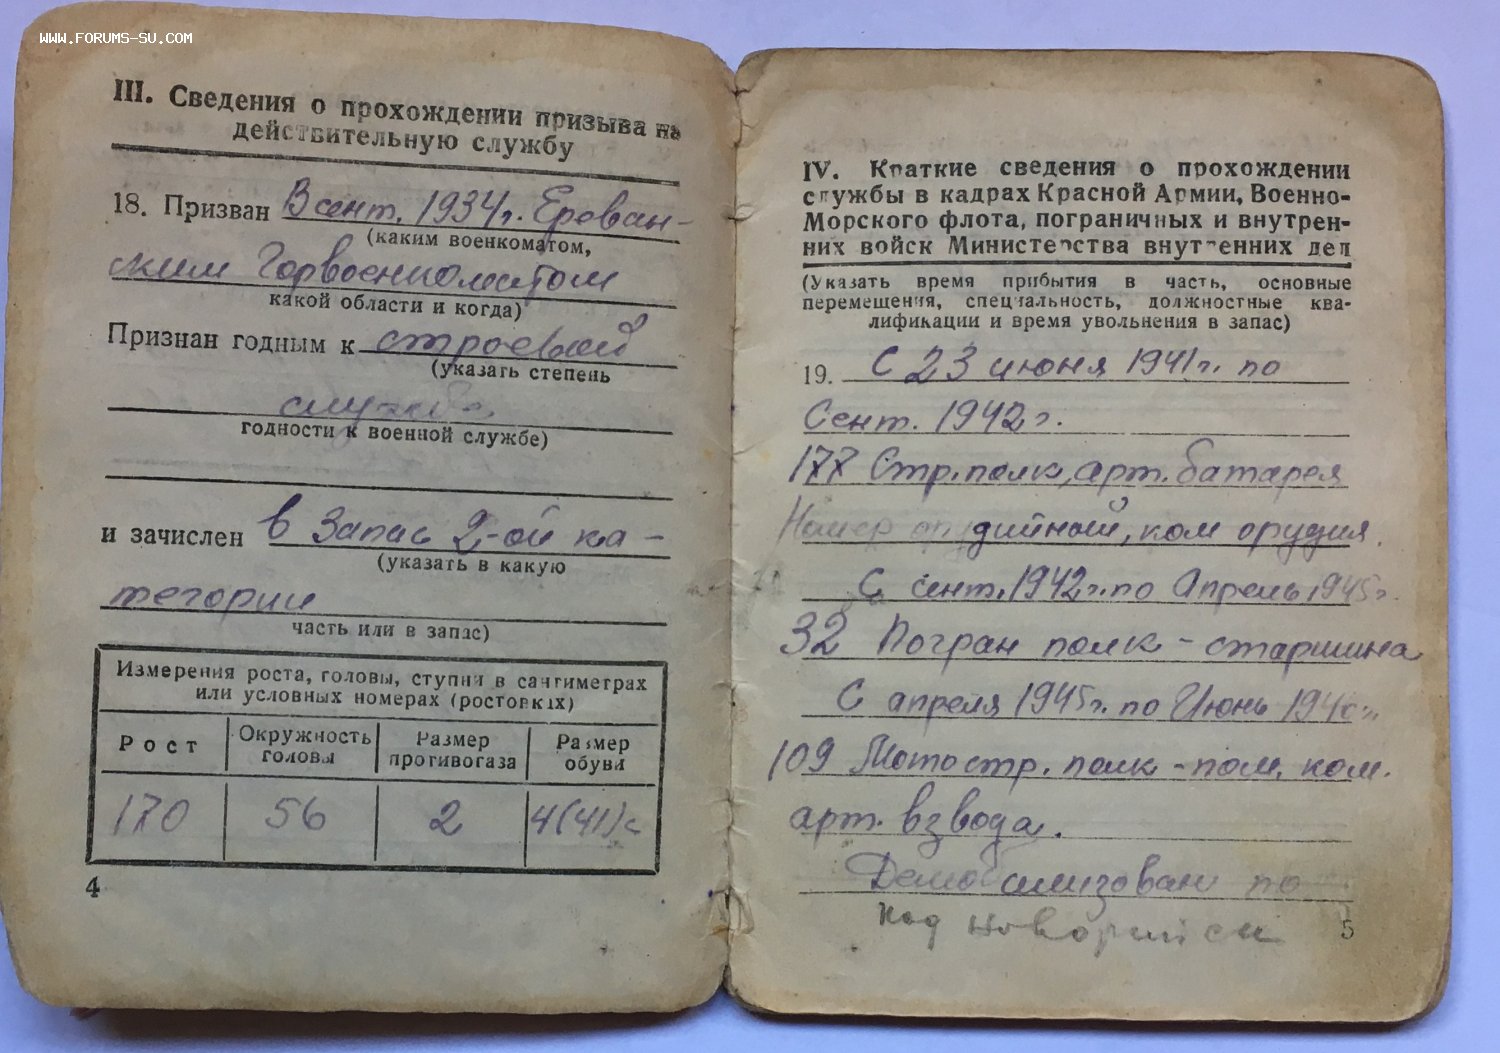 WWW.FORUMS-SU.COM
III. Сведения о прохождении призыва на
действительную службу
18. Призван В сент. 1934 г. Ерован-
(каким военкоматом,
ским Горвоенкоматом
какой области и когда)
Признан годным к строевой
(указать степень
службе
годности к военной службе)
и зачислен в Запас 2-ой ка-
(указать в какую
тегории
часть или в запас)
Измерения роста, головы, ступни в сантиметрах
или условных номерах (ростовках)
Рост Окружность головы Размер противогаза Размер обуви
170 56 2 4(41)
4
IV. Краткие сведения о прохождении
службы в кадрах Красной Армии, Военно-
Морского флота, пограничных и внутрен-
них войск Министерства внутренних дел
(Указать время прибытия в часть, основные
перемещения, специальность, должностные ква-
лификации и время увольнения в запас)
19. С 23 июня 1941 г. по
Сент. 1942 г.
177 Стр. полк, арт. батарея
Номер орудийный, ком орудия.
С сент. 1942 г. по Апрель 1945 г.
32 Погран полк - старшина
С апреля 1945 г. по Июнь 1946 г.
109 Мотостр. полк - пом. ком.
арт. взвода.
Демобилизован по
под
5